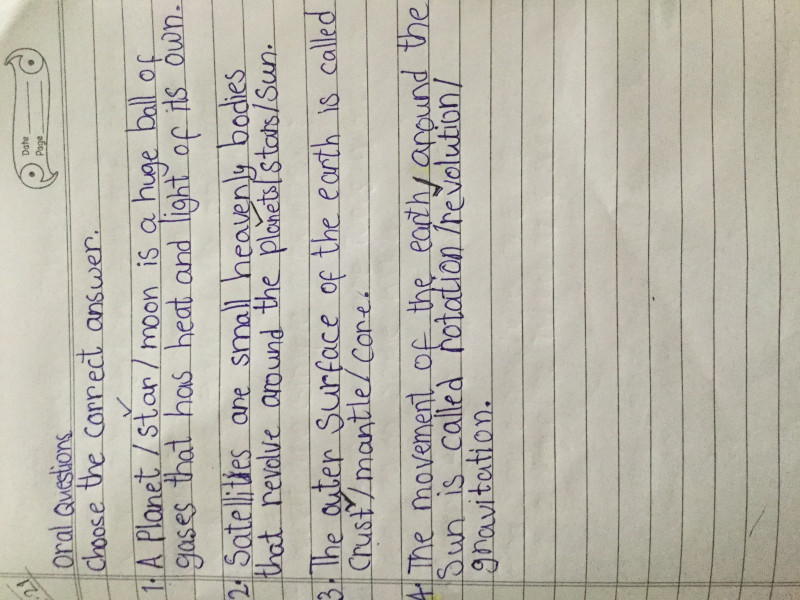 Date
Page
Oral Questions
Choose the correct answer.
1. A Planet / Star / moon is a huge ball of
gases that has heat and light of its own.
2. Satellites are small heavenly bodies
that revolve around the planets/stars/sun.
3. The outer Surface of the earth is called
Crust/mantle/core.
4. The movement of the earth around the
Sun is called rotation/revolution/
gravitation.